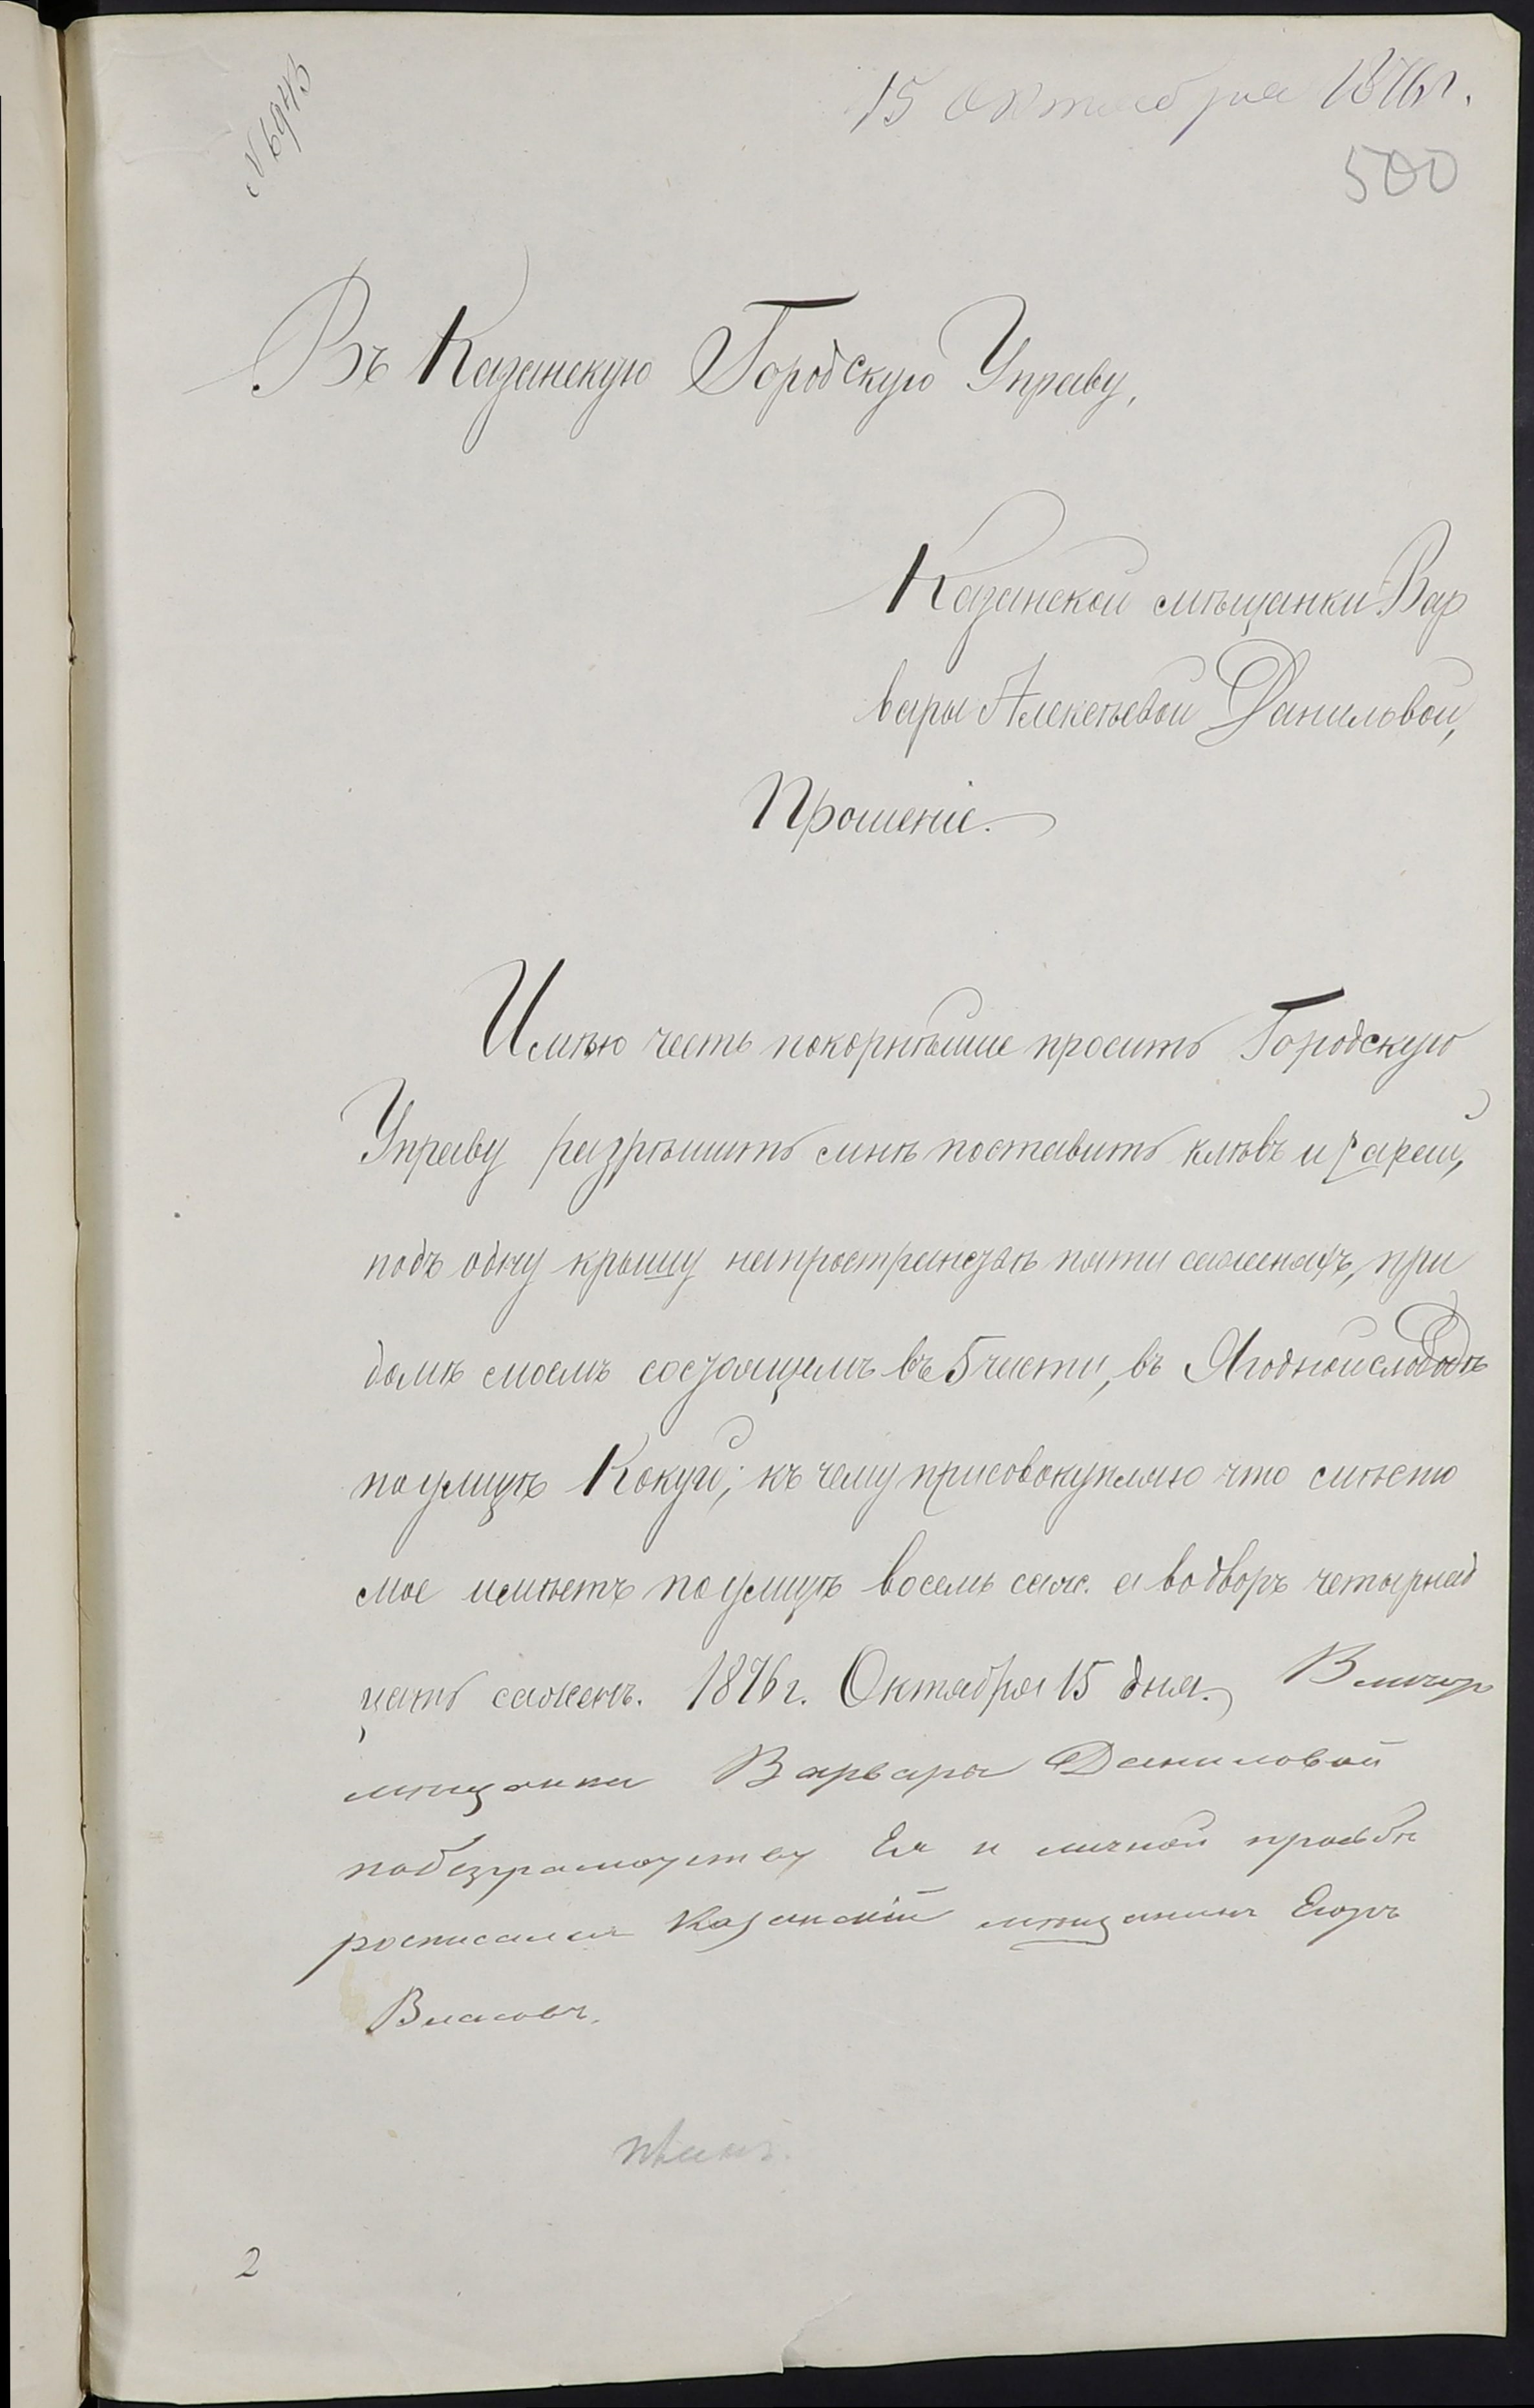 № 6943
15 октября 1876 г.
500
Въ Казанскую Городскую Управу,
Казанской мѣщанки Вар
вары Алексѣевой Данильвой,
Прошеніе.
Имѣю честь покорнѣйше просить Городскую
Управу разрѣшить мнѣ поставить клѣвъ и сарай,
подъ одну крышу на пространствѣ пяти саженахъ, при
домѣ моемъ состоящимъ въ 5 части, въ Ягодной слободѣ
по улицѣ Кокуй; къ чему присовокупляю что мѣсто
мое имѣетъ по улицѣ восемь саж. а во дворъ четырнад
цать сажень. 1876 г. Октября 15 дня.
мѣщанки Варвары Даниловой
по безграмотству Ея и личной прозьбѣ
росписался Казанскій мѣщанинъ Егоръ
Власовъ.
2